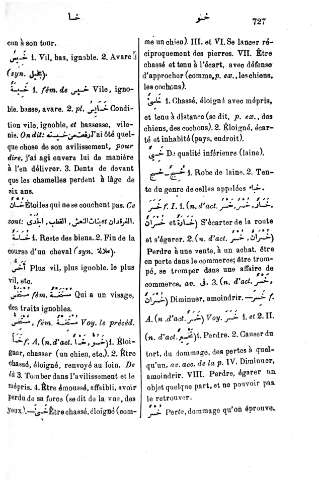 خسا
خسر
727
con à son tour.
خَسِيسٌ 1. Vil, bas, ignoble. 2. Avare
(syn. بخيل).
خَسِيسَةٌ 1. fém. de خسيس Vile, igno-
ble, basse, avare. 2. pl. خَسَائِسُ Condi-
tion vile, ignoble, et bassesse, vile-
nie. On dit: رفعت من خسيسته J'ai été quel-
que chose de son avilissement, pour
dire, j'ai agi envers lui de manière
à l'en délivrer. 3. Dents de devant
que les chamelles perdent à l'âge de
six ans.
Étoiles qui ne se couchent pas. Ce
sont:
1. Reste des biens. 2. Fin de la
course d'un cheval (syn. علالة).
Plus vil, plus ignoble. le plus
vil, etc.
fém. Qui a un visage,
des traits ignobles.
fém. Voy. le précéd.
خَسَأَ f. A. (n. d'act. خَسْءٌ, خُسُوءٌ) 1. Éloi-
gner, chasser (un chien, etc.). 2. Être
chassé, éloigné, renvoyé au loin. De
là 3. Tomber dans l'avilissement et le
mépris. 4. Être émoussé, affaibli, avoir
perdu de sa force (se dit de la vue, des
yeux). — خَسِئَ Être chassé, éloigné (com-
me un chien). III. et VI. Se lancer ré-
ciproquement des pierres. VII. Être
chassé et tenu à l'écart, avec défense
d'approcher (comme, p. ex., les chiens,
les cochons).
1. Chassé, éloigné avec mépris,
et tenu à distance (se dit, p. ex., des
chiens, des cochons). 2. Éloigné, écar-
té et inhabité (pays, endroit).
خَسِيءٌ De qualité inférieure (laine).
خَسِيجٌ 1. Robe de laine. 2. Ten-
te du genre de celles appelées خباء.
خَسِرَ f. I. 1. (n. d'act.
خُسْرَانٌ et خَسَارَةٌ) S'écarter de la route
et s'égarer. 2. (n. d'act.
Perdre à une vente, à un achat, être
en perte dans le commerce; être trom-
pé, se tromper dans une affaire de
commerce, ac. J. 3. (n. d'act.
خُسْرَانٌ) Diminuer, amoindrir. — خَسِرَ f.
A. (n. d'act. خَسَرٌ) Voy. خَسَرَ 1. et 2. II.
(n. d'act. تَخْسِيرٌ) 1. Perdre. 2. Causer du
tort, du dommage, des pertes à quel-
qu'un, ac. acc. de la p. IV. Diminuer,
amoindrir. VIII. Perdre, égarer un
objet quelque part, et ne pouvoir pas
le retrouver.
خُسْرٌ Perte, dommage qu'on éprouve.